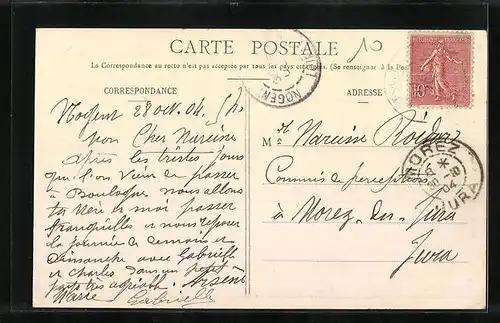 CARTE POSTALE
10
La Correspondance au recto n'est pas acceptée par tous les pays étrangers. (Se renseigner à la Poste)
CORRESPONDANCE
ADRESSE
Nogent 28 oct. 04.
Mon Cher Narcisse
Après les tristes jours
que l'on vient de passer
à Boulogne nous allons
ta Mère et moi passer
tranquilles et nous reposer
la journée de demain et
Dimanche avec Gabrielle
et Charles dans un petit
très agréable. Arsène
Marie Gabrielle
M. Narcisse
Commis de perception
à Morez-du-Jura
Jura
NOGENT
MOREZ
04
JURA
10